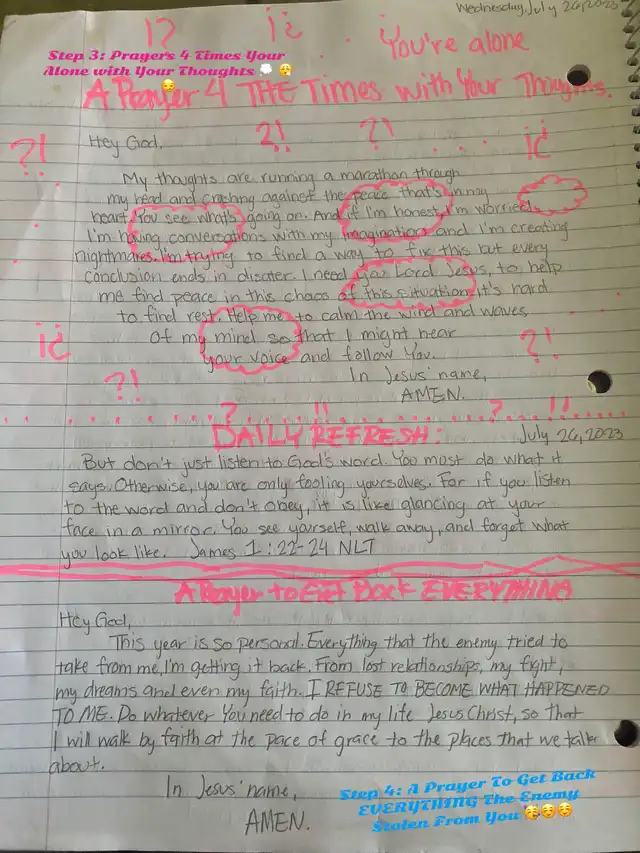 Wednesday, July 26, 2023
!? ¡¿ You're alone
Step 3: Prayers 4 Times Your
Alone with Your Thoughts 💭 😮‍💨
A Prayer 4 THE Times with Your Thoughts.
?! ?! ?! ¡¿
Hey God,
My thoughts are running a marathon through
my head and crashing against the peace that's in my
heart. You see what's going on. And if I'm honest, I'm worried.
I'm having conversations with my imagination and I'm creating
nightmares. I'm trying to find a way to fix this but every
conclusion ends in disater. I need you Lord Jesus, to help
me find peace in this chaos of this situation. It's hard
to find rest. Help me to calm the wind and waves
of my mind so that I might hear
your voice and follow You.
In Jesus' name,
AMEN.
¡¿ ?! ?!
? !! ? !!
DAILY REFRESH: July 26, 2023
But don't just listen to God's word. You most do what it
says. Otherwise, you are only fooling yourselves. For if you listen
to the word and don't obey, it is like glancing at your
face in a mirror. You see yourself, walk away, and forget what
you look like. James 1:22-24 NLT
A Prayer to Get Back EVERYTHING
Hey God,
This year is so personal. Everything that the enemy tried to
take from me, I'm getting it back. From lost relationships, my fight,
my dreams and even my faith. I REFUSE TO BECOME WHAT HAPPENED
TO ME. Do whatever You need to do in my life Jesus Christ, so that
I will walk by faith at the pace of grace to the places that we talke
about.
In Jesus' name,
AMEN.
Step 4: A Prayer To Get Back
EVERYTHING The Enemy
Stolen From You 🥳☺️☺️